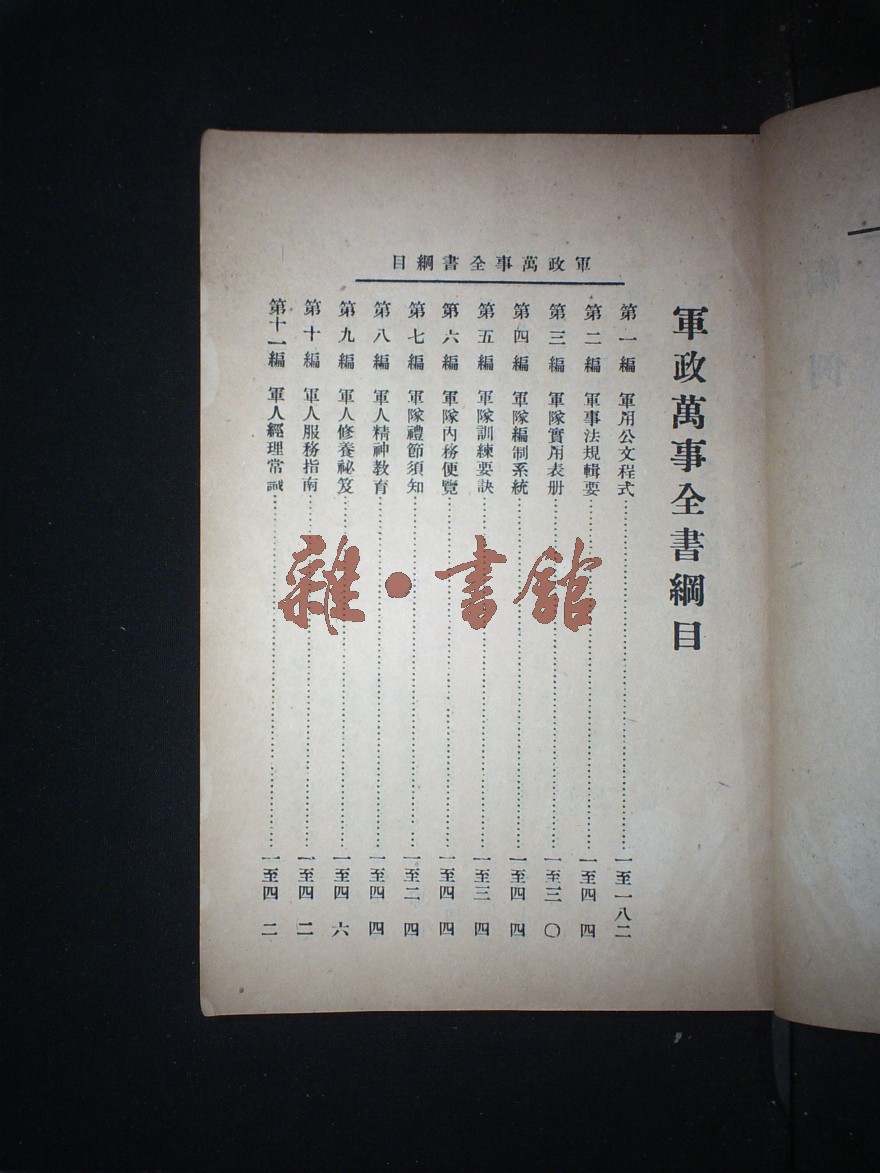 軍政萬事全書綱目
軍政萬事全書綱目
第一編 軍用公文程式……一至一八二
第二編 軍事法規輯要……一至四四
第三編 軍隊實用表册……一至三〇
第四編 軍隊編制系統……一至四四
第五編 軍隊訓練要訣……一至三四
第六編 軍隊內務便覽……一至四四
第七編 軍隊禮節須知……一至二四
第八編 軍人精神教育……一至四四
第九編 軍人修養祕笈……一至四六
第十編 軍人服務指南……一至四二
第十一編 軍人經理常識……一至四二
雜·書館